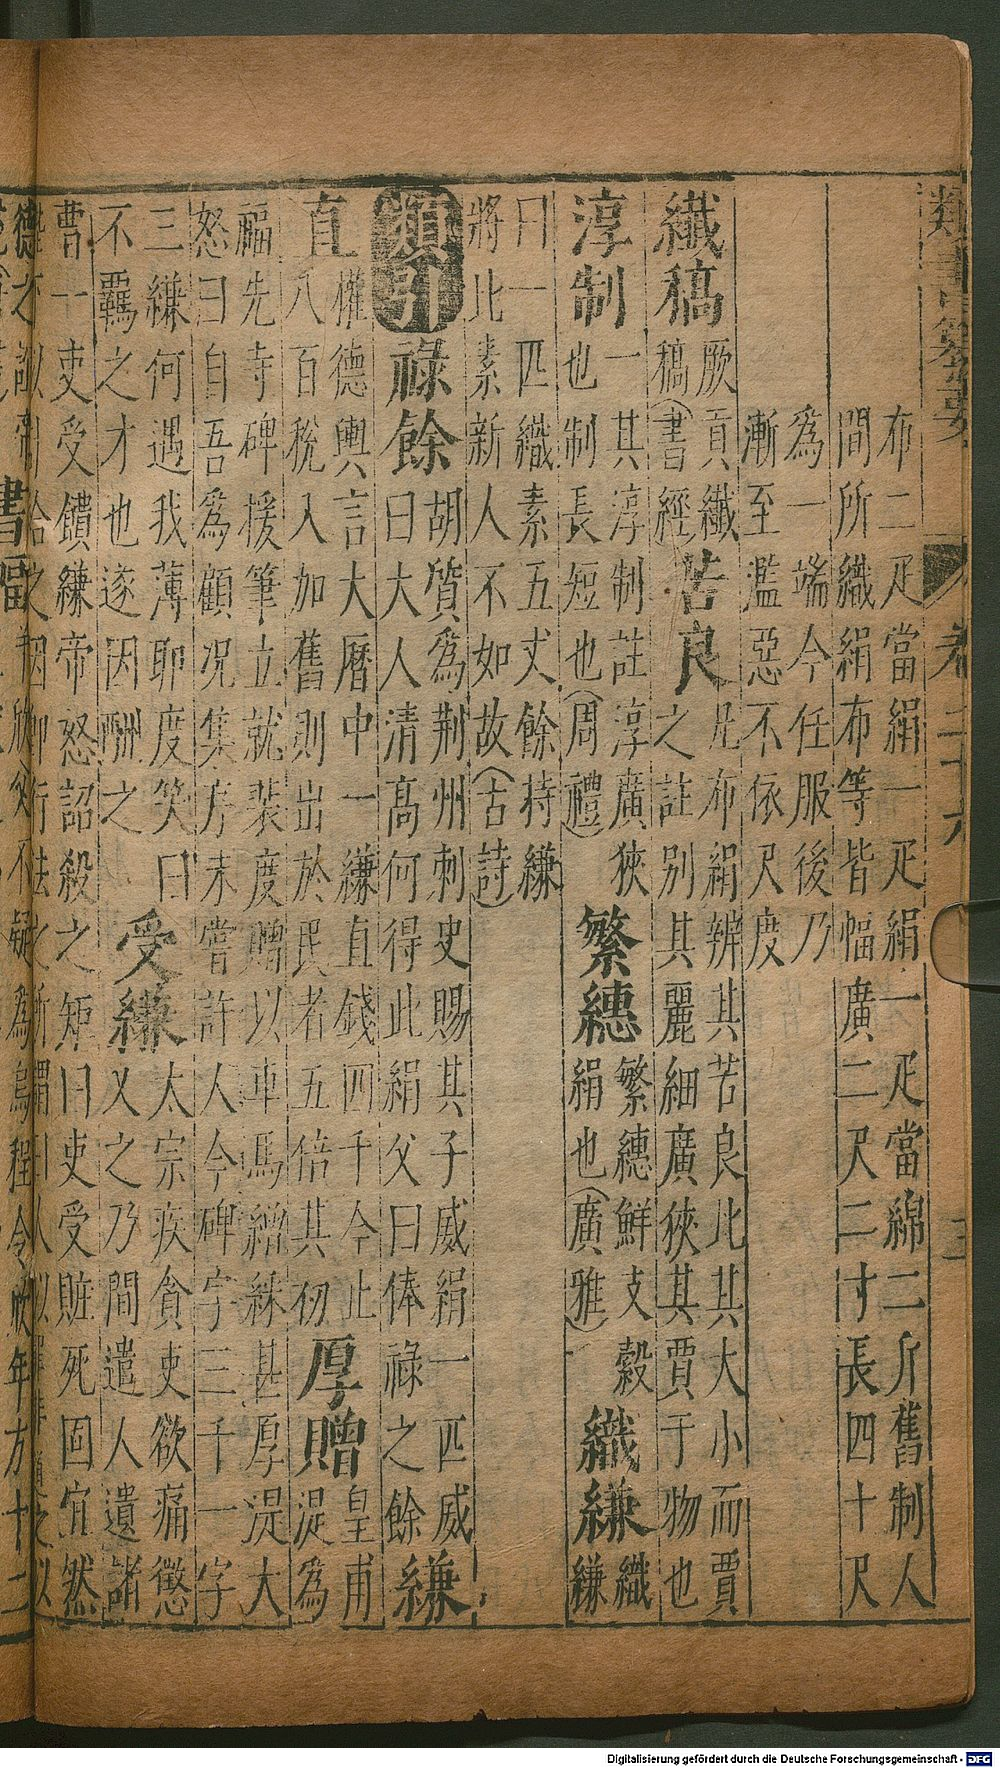 類書纂要 卷二十六
布二疋當絹一疋絹一疋當綿二斤舊制人
間所織絹布等皆幅廣二尺二寸長四十尺
為一端今任服後乃
漸至濫惡不依尺度
纖稿
厥貢纖
稿(書經)
苦良
凡布絹辨其苦良比其大小而賈
之註別其麗細廣狹其賈于物也
淳制
一其淳制註淳廣狹
也制長短也(周禮)
繁繐
繁繐鮮支縠
絹也(廣雅)
織縑
織縑
曰一匹織素五丈餘持縑
將此素新人不如故(古詩)
類引
祿餘
胡質為荆州刺史賜其子威絹一匹威
曰大人清高何得此絹父曰俸祿之餘
縑直
權德輿言大曆中一縑直錢四千今止
八百稅入加舊則出於民者五倍其初
厚贈
皇甫湜為
福先寺碑援筆立就裴度贈以車馬繒綵甚厚湜大
怒曰自吾為顧況集序未嘗許人今碑字三千一字
三縑何遇我薄耶度笑曰
不羈之才也遂因酬之
受縑
太宗疾貪吏欲痛懲
又之乃間遣人遺諸
曹一吏受饋縑帝怒詔殺之矩曰吏受賍死固宜然
書裙
羊欣父不疑為烏程令欣年方十二